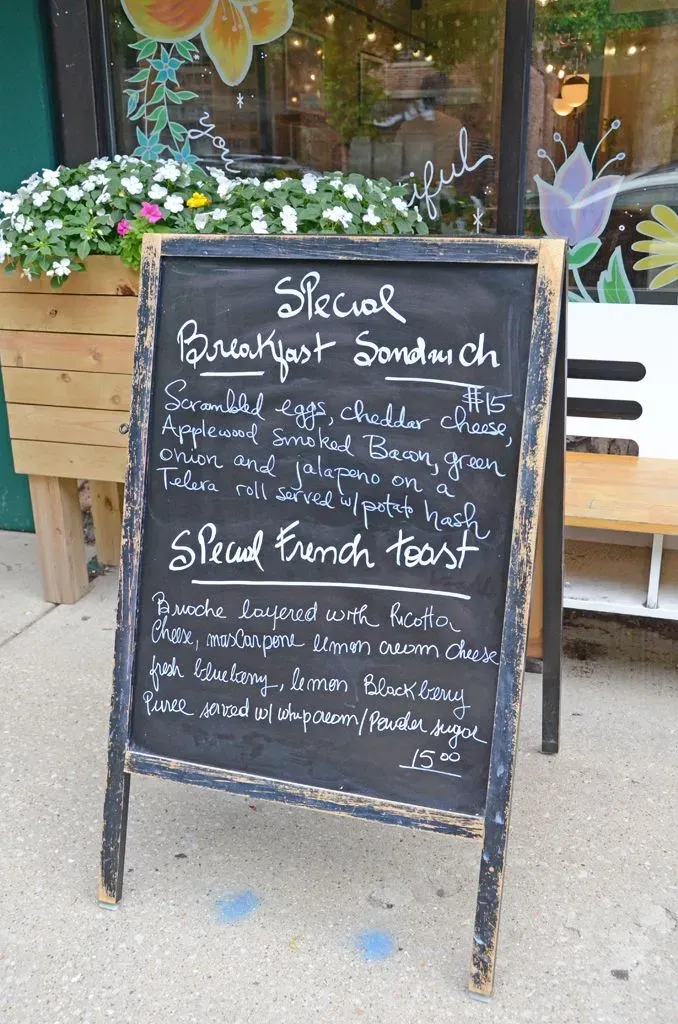 you
iful
Special
Breakfast Sandwich
$15
Scrambled eggs, cheddar cheese,
Applewood smoked Bacon, green
onion and jalapeno on a
Telera roll served w/potato hash
Special French toast
Brioche layered with Ricotta
Cheese, mascarpone lemon cream cheese
fresh blueberry, lemon Blackberry
Puree served w/ whip cream/Powder sugar
15.00